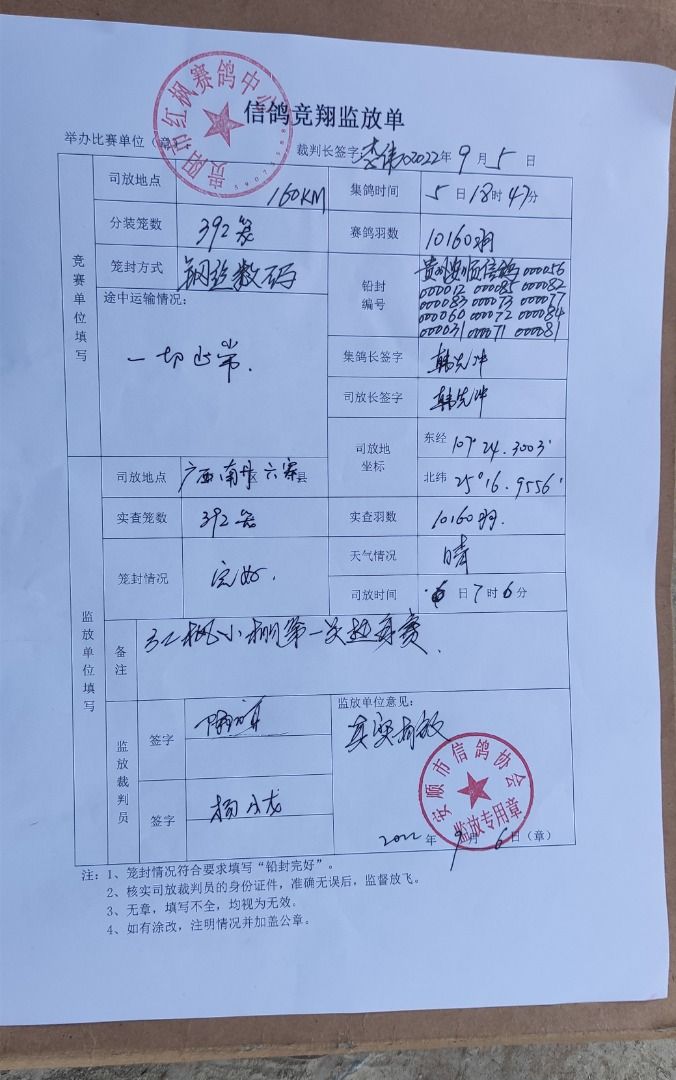 信鸽竞翔监放单
贵阳市红枫赛鸽中心
举办比赛单位（章）：
裁判长签字 2022年9月5日
竞赛单位填写
司放地点 160KM 集鸽时间 5日18时47分
分装笼数 392笼 赛鸽羽数 10160羽
笼封方式 钢丝数码 铅封编号 贵州安顺信鸽 000056
000012 000085 000082
000083 000073 000077
000060 000072 000084
000031 000071 000081
途中运输情况：
一切正常.
集鸽长签字 韩先冲
司放长签字 韩先冲
司放地坐标 东经 107°24.3003'
北纬 25°16.9556'
监放单位填写
司放地点 广西南丹区六寨县
实查笼数 392笼 实查羽数 10160羽.
笼封情况 完好. 天气情况 晴
司放时间 6日7时6分
备注 红枫小棚第一关热身赛.
监放裁判员
签字
签字 杨小龙
监放单位意见：
真实有效
安顺市信鸽协会
监放专用章
2022年9月6日（章）
注：1、笼封情况符合要求填写“铅封完好”。
2、核实司放裁判员的身份证件，准确无误后，监督放飞。
3、无章，填写不全，均视为无效。
4、如有涂改，注明情况并加盖公章。